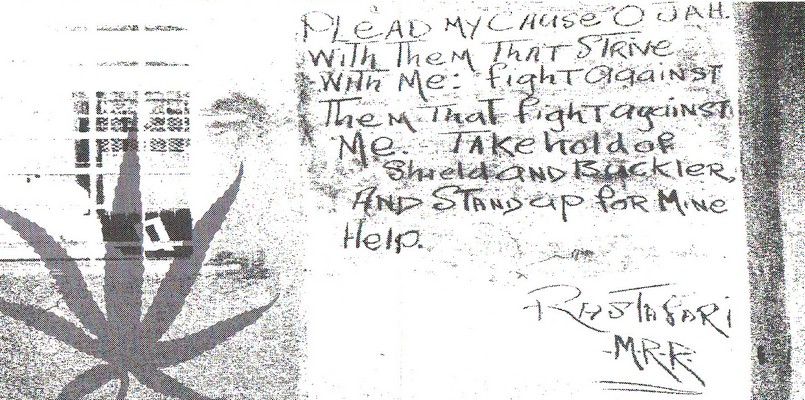 PLEAD MY CAUSE O JAH.
With Them THAT STRIVE
With Me: fight against
Them That fight against
Me. Take hold of
Shield AND Buckler,
AND STAND up for Mine
Help.
RASTAFARI
M.R.R.